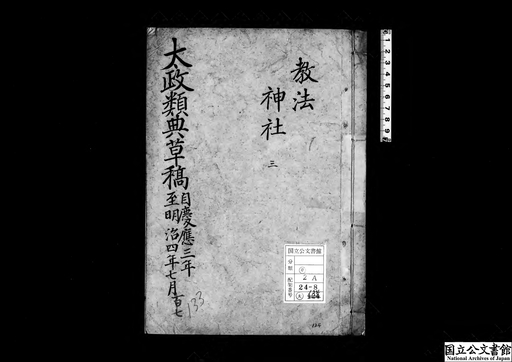 教法
神社
三
太政類典草稿
自慶應三年
至明治四年七月
百七
133
国立公文書館
分類
配架番号
2 A
24-8
国立公文書館
National Archives of Japan